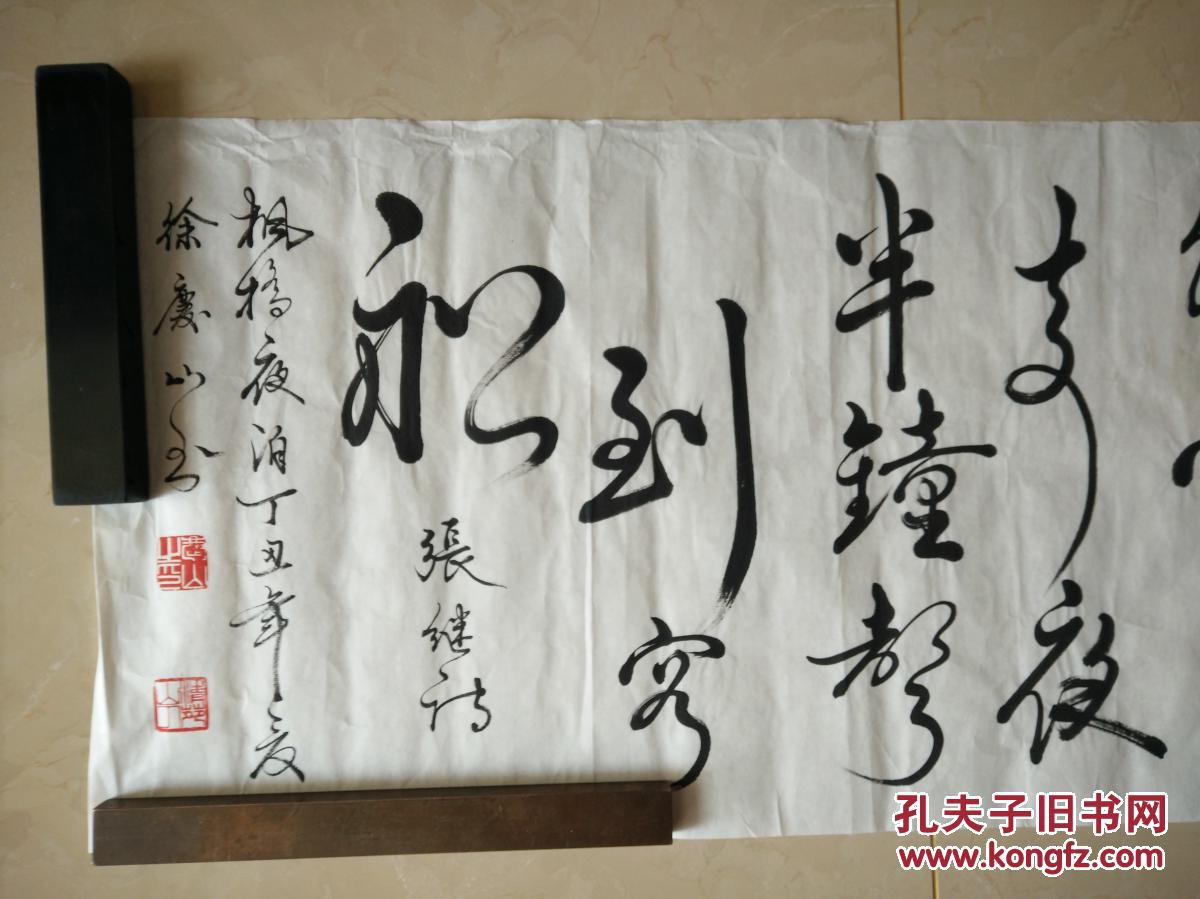 寺夜
半鐘聲
到客
船
張继詩
枫橋夜泊丁丑年夏
徐慶山书
孔夫子旧书网
www.kongfz.com